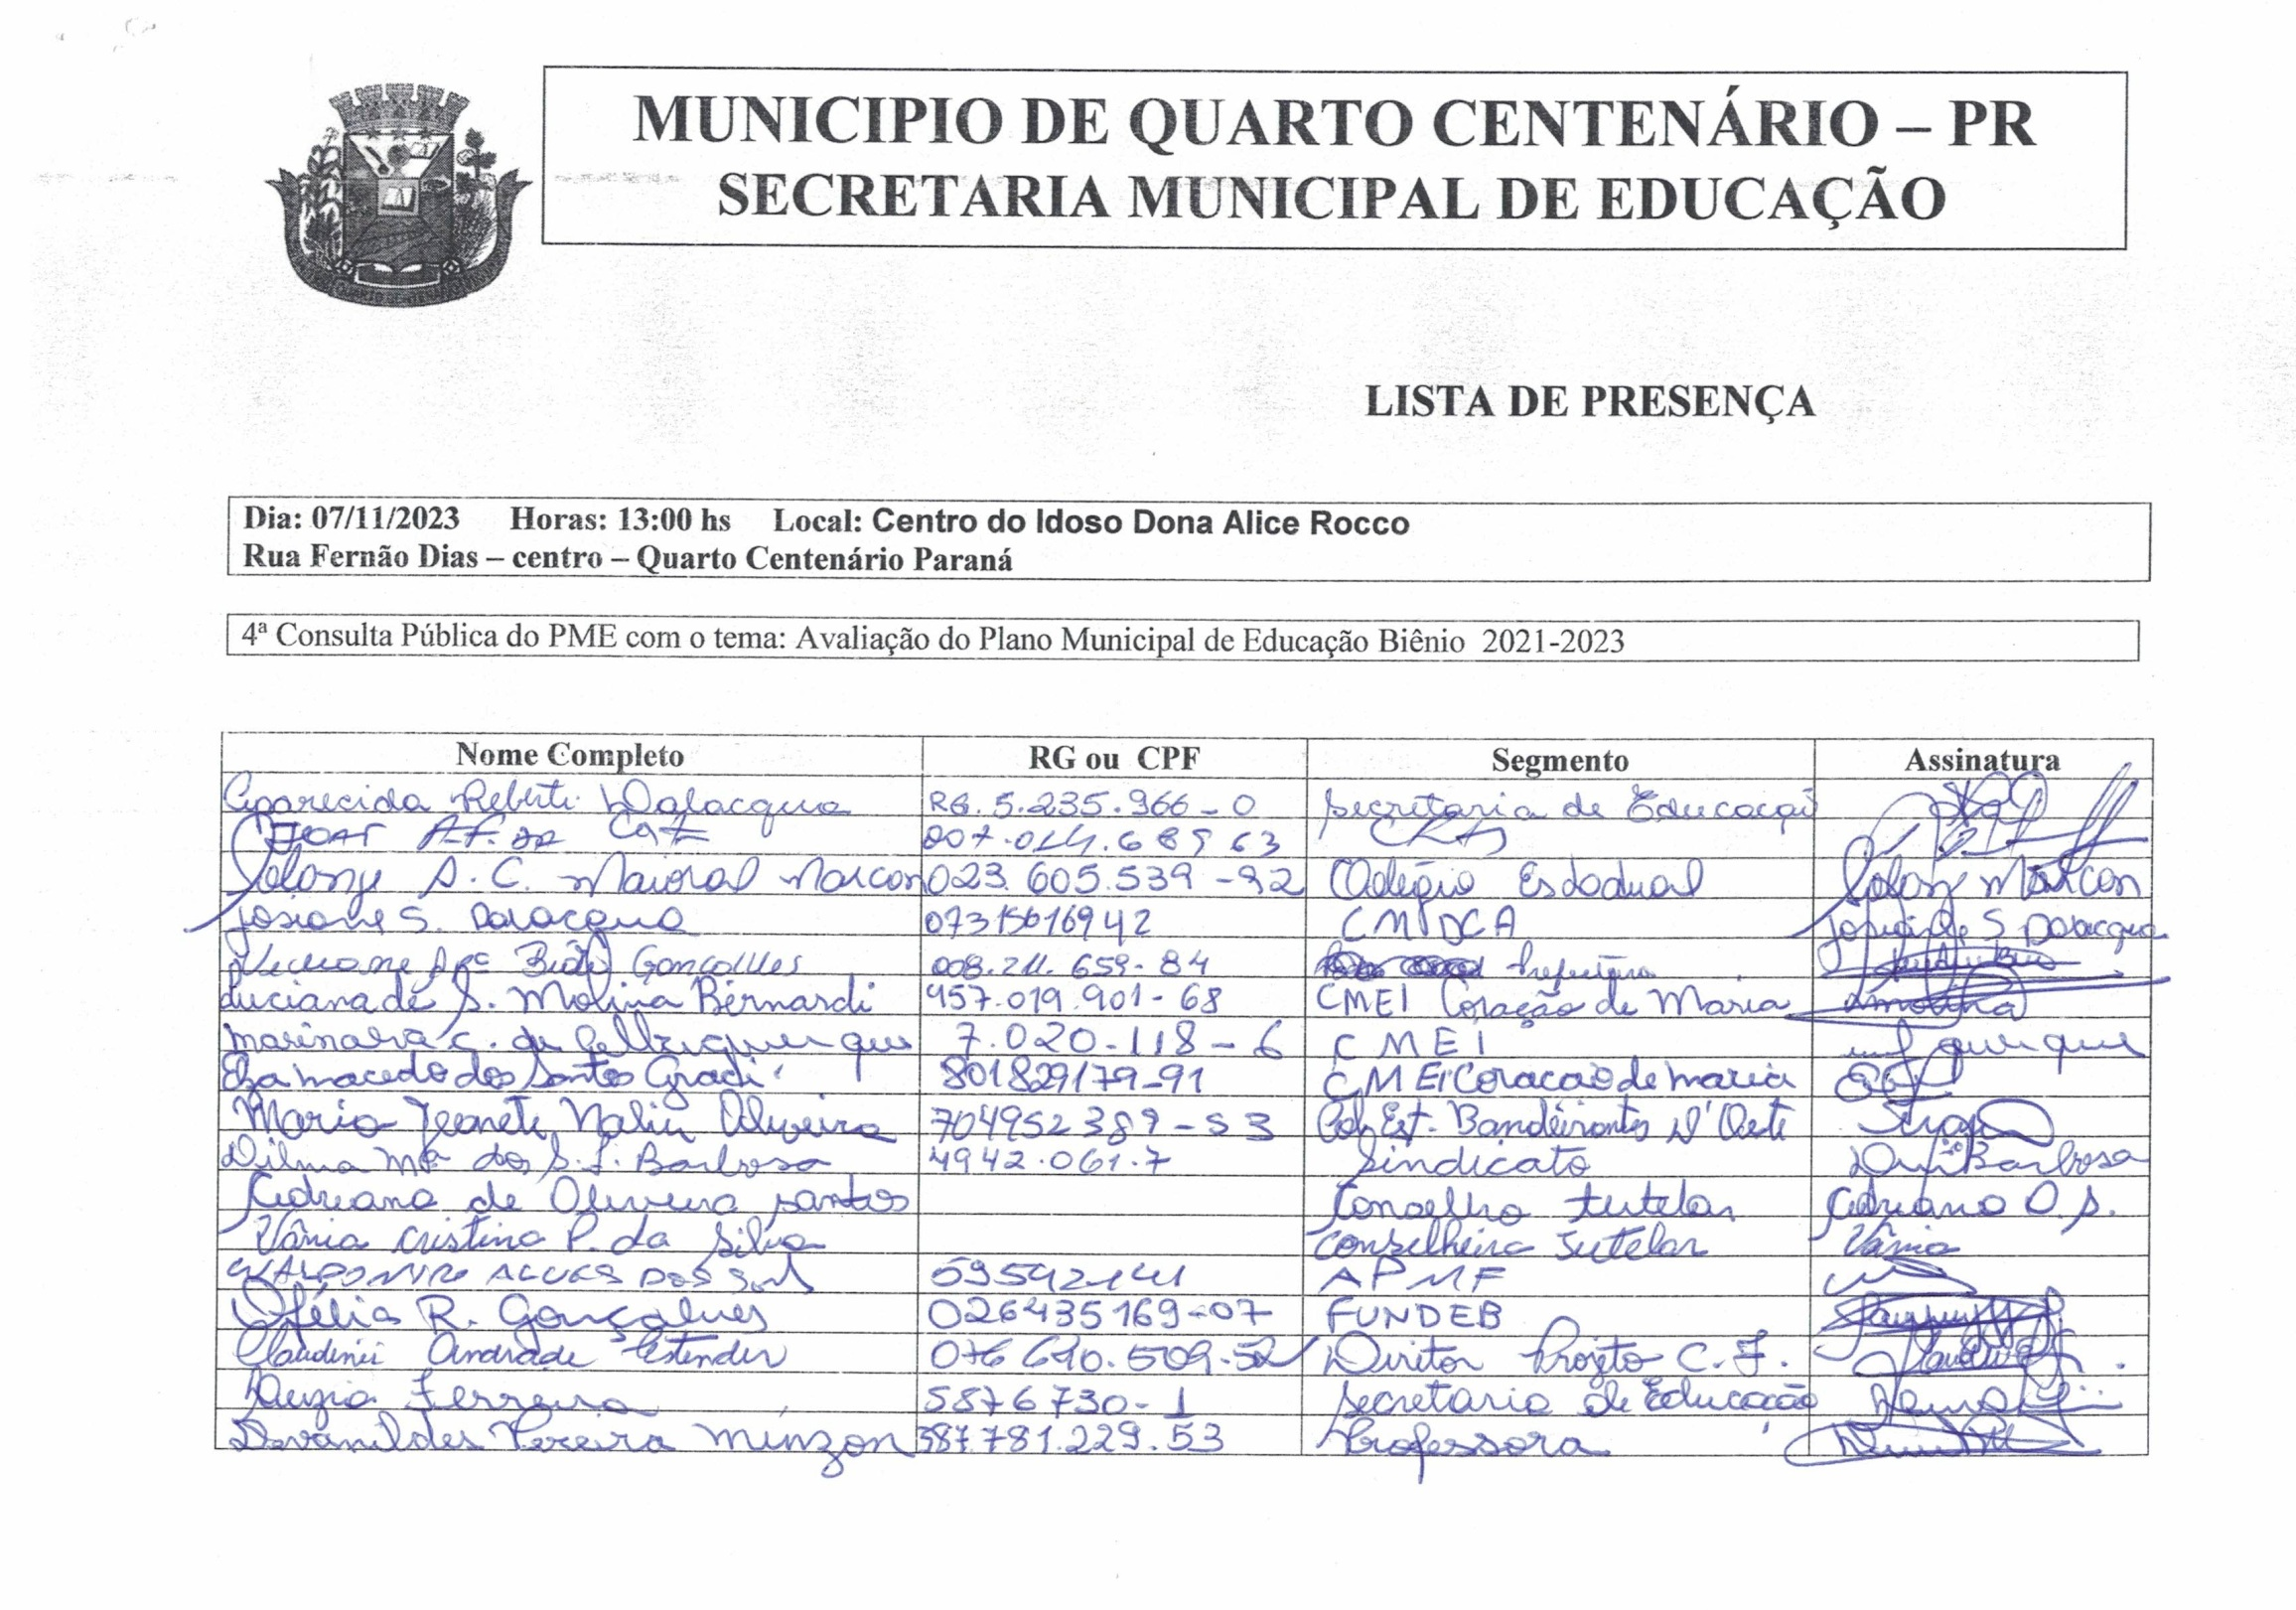 MUNICIPIO DE QUARTO CENTENÁRIO – PR
SECRETARIA MUNICIPAL DE EDUCAÇÃO
LISTA DE PRESENÇA
Dia: 07/11/2023 Horas: 13:00 hs Local: Centro do Idoso Dona Alice Rocco
Rua Fernão Dias – centro – Quarto Centenário Paraná
4ª Consulta Pública do PME com o tema: Avaliação do Plano Municipal de Educação Biênio 2021-2023
Nome Completo RG ou CPF Segmento Assinatura
Aparecida Dalacqua RG. 5.235.966-0 Secretaria de Educaçã
A.F. da
Solange A. C. Maioral Marcon 023.605.539-92 Colégio Estadual Marcon
Josiane S. Dalacqua 07315616942 CMDCA S Dalacqua
Gonçalves 008.211.659-84 Prefeitura
Luciana de S. Molina Bernardi 957.019.901-68 CMEI Coração de Maria
C. de 7.020-118-6 CMEI
Elza Macedo dos Santos 801829179-91 CMEI Coracao de Maria
Maria Jeanete Nalin Oliveira 704952389-53 Col. Est. Bandeirantes D'Oeste
Dilma Mª dos S. S. Barbosa 4942.061.7 Sindicato Barbosa
Adriana de Oliveira Santos Conselho tutelar Adriana O. S.
Vânia Cristina P. da Silva Conselheira Tutelar Vânia
ALVES DOS APMF
Ofélia R. Gonçalves 026435169-07 FUNDEB
Claudinei Andrade Diretor Projeto C. F.
Luzia Ferreira 5876730-1 Secretaria de Educação
Devanildes Pereira Minzon 387.781.229.53 Professora